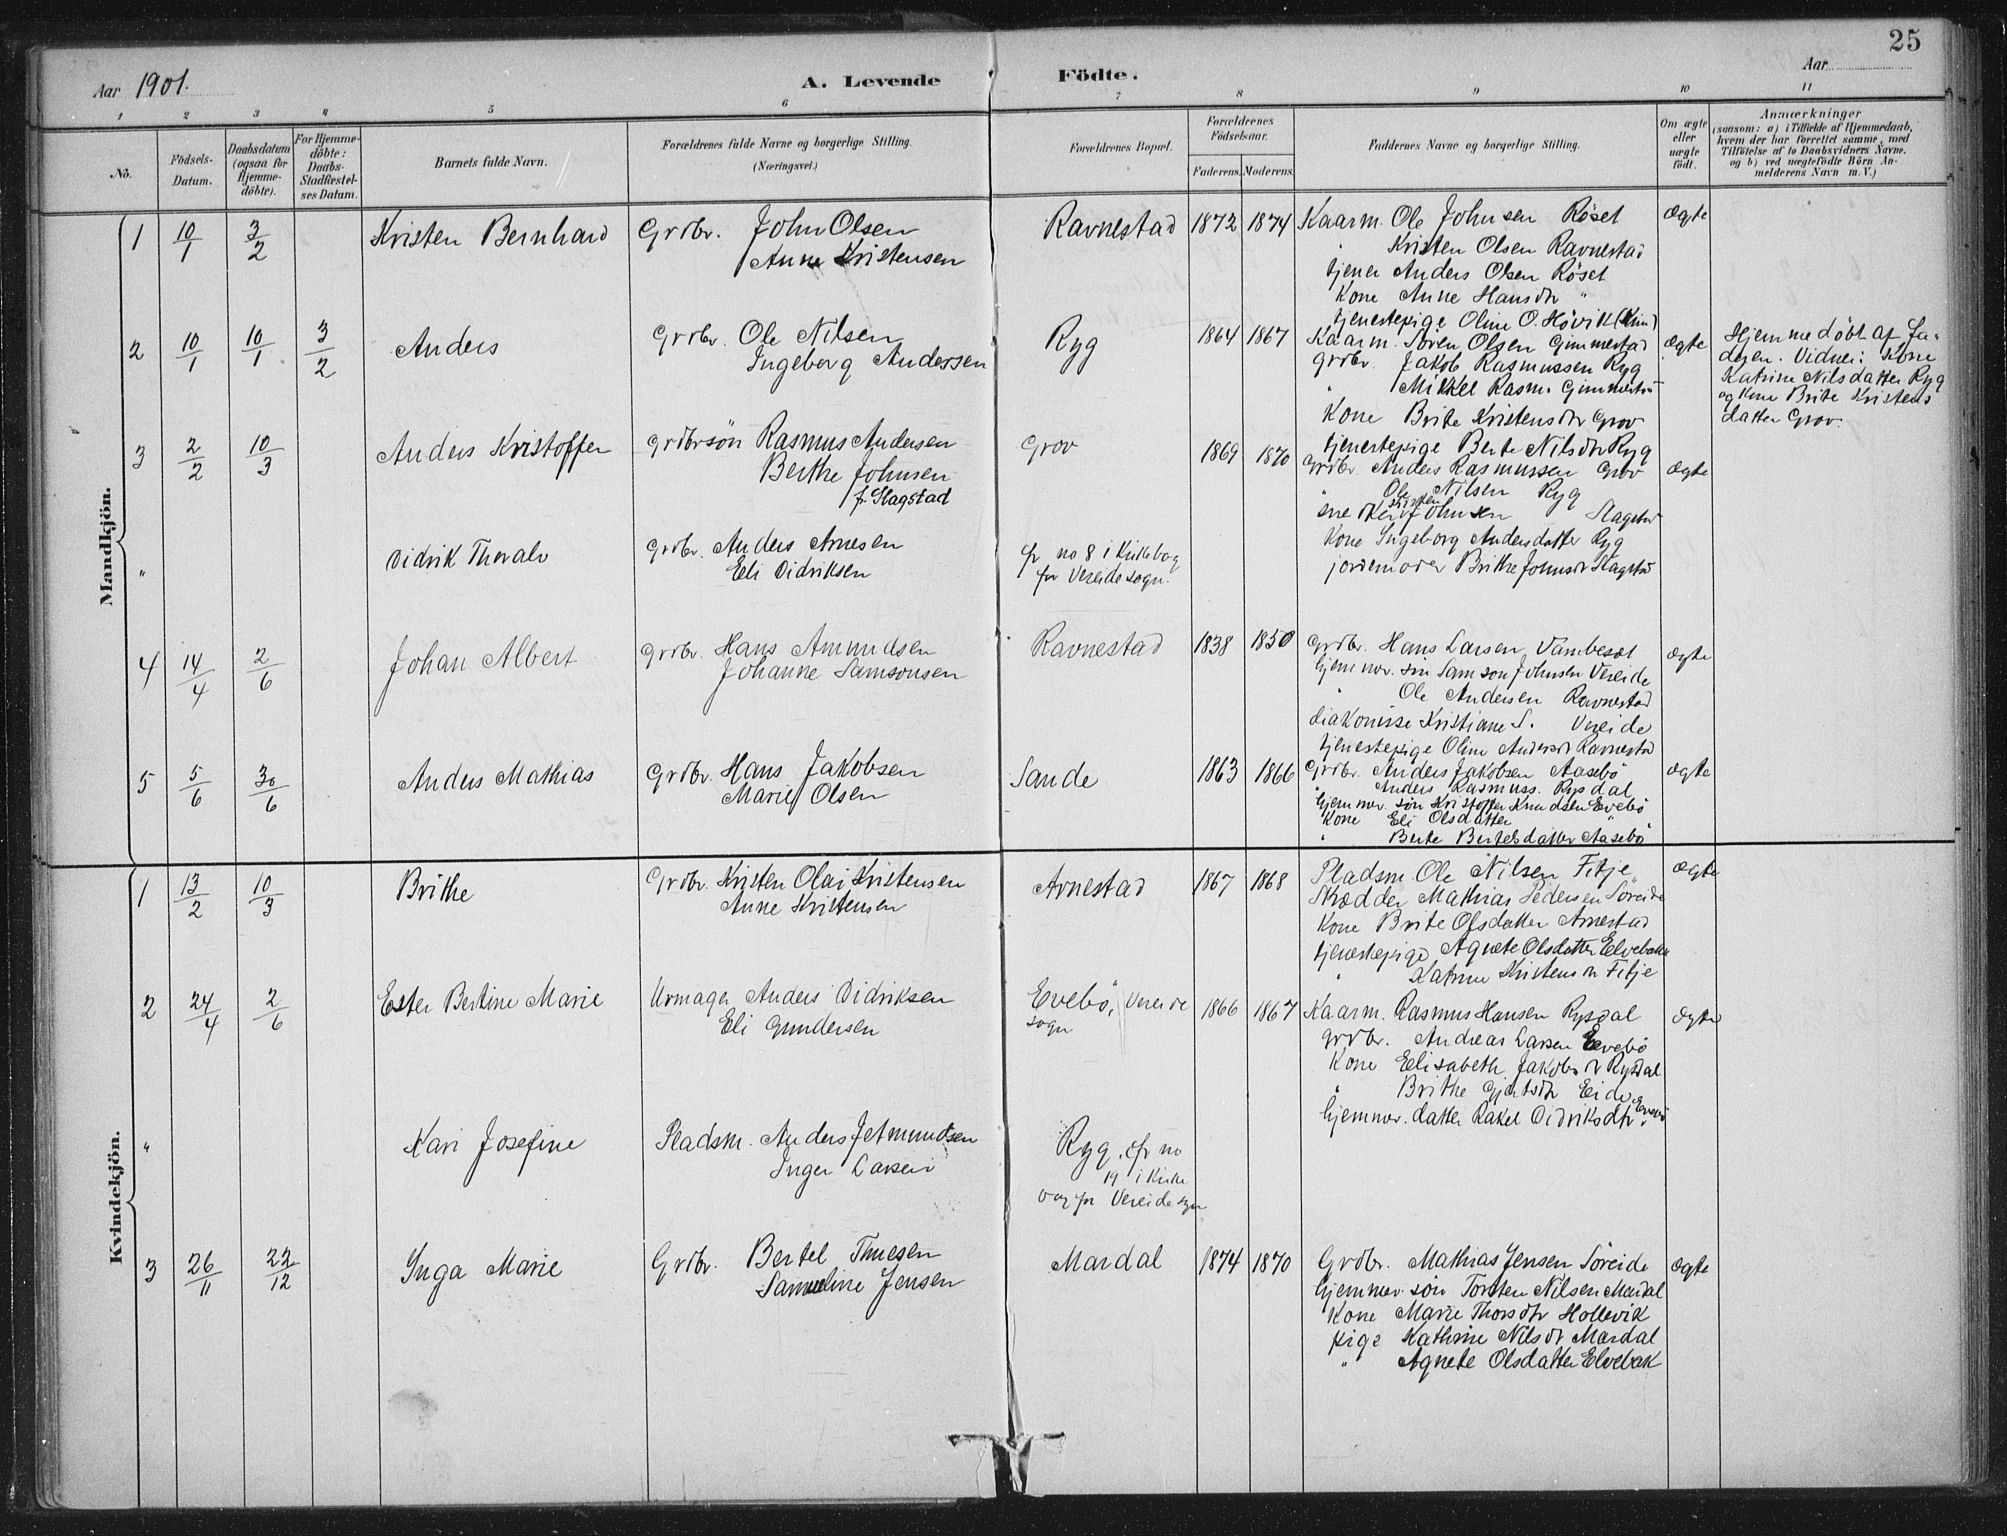 25
Aar 1901. A. Levende Födte. Aar
1 2 3 4 5 6 7 8 9 10 11
No.
Födsels-Datum.
Daabsdatum (ogsaa for Hjemme-döbte).
For Hjemme-döbte: Daabs-Stadfæstel-ses Datum.
Barnets fulde Navn.
Forældrenes fulde Navne og borgerlige Stilling. (Næringsvei.)
Forældrenes Bopæl.
Forældrenes Födselsaar. Faderens. Moderens.
Faddernes Navne og borgerlige Stilling.
Om ægte eller uægte födt.
Anmærkninger (saasom: a) i Tilfælde af Hjemmedaab, hvem der har forrettet samme, med Tilföielse af to Daabsvidners Navne, og b) ved uægtefödte Börn An-melderens Navn m. V.)
Mandkjön.
1 10/1 3/2 Kristen Bernhard Grdbr. John Olsen Ravnestad 1872 1874 Kaarm. Ole Johnsen Röset ægte
Anne Kristensen " Kristen Olsen Ravnestad
tjener Anders Olsen Röset
Kone Anne Hansdtr "
tjenestepige Oline O. Hövik
2 10/1 10/1 3/2 Anders Grdbr. Ole Nilsen Ryg 1864 1867 Kaarm. Sören Olsen Gimmestad ægte Hjemmedöbt af Fa-
Ingeborg Andersen Grdbr. Jakob Rasmussen Ryg deren. Vidner: Kone
" Mikkel Rasm. Gimmestad Katrine Nilsdatter Ryg
Kone Brite Kristensdtr Grov og Kone Brite Kristens
tjenestepige Berte Nilsdtr Ryg datter Grov.
3 2/2 10/3 Anders Kristoffer Grdbrsön Rasmus Andersen Grov 1869 1870 Grdbr. Anders Rasmussen Grov ægte
Berthe Johnsen " Ole Nilsen Ryg
f. Slagstad Johnsen Slagstad
Kone Ingeborg Andersdatter Ryg
jordemoder Brithe Johnsdtr Slagstad
" Didrik Thoralv Grdbr. Anders Arnesen cfr no 8 i Kirkebog
Eli Didriksen for Vereide sogn.
4 14/4 2/6 Johan Albert Grdbr. Hans Amundsen Ravnestad 1838 1850 Grdbr. Hans Larsen, Vambeset ægte
Johanne Samsonsen hjemmev. sön Samson Johnsen Vereide
" Ole Andersen Ravnestad
diakonisse Kristiane S. Vereide
tjenestepige Oline Andersdtr Ravnestad
5 5/6 30/6 Anders Mathias Grdbr. Hans Jakobsen Sande 1863 1866 Grdbr. Anders Jakobsen Aasebö ægte
Marie Olsen " Anders Rasmuss. Rysdal
hjemmev. sön Kristoffer Knudsen Evebö
Kone Eli Olsdatter "
" Berte Bertelsdatter Aasebö
Kvindekjön.
1 13/2 10/3 Brithe Grdbr. Kristen Olai Kristensen Arnestad 1867 1868 Pladsm. Ole Nilsen Fitje ægte
Anne Kristensen Skrædder Mathias Pedersen Söreide
Kone Brite Olsdatter Arnestad
tjenestepige Agnete Olsdatter Elvebakk
" Katrine Kristensdtr Fitje
2 24/4 2/6 Ester Bertine Marie Urmager Anders Didriksen Evebö, Vereide 1866 1867 Kaarm. Rasmus Hansen Rysdal ægte
Eli Gundersen sogn Grdbr. Andreas Larsen Evebö
Kone Elisabeth Jakobsdtr Rysdal
" Brithe Gjertsdtr Eide
hjemmev. datter Rakel Didriksdtr. Evebö
" Kari Josefine Pladsm. Anders Jetmundsen Ryg, cfr no
Inger Larsen 19 i Kirke
bog for Vereide sogn
3 26/11 22/12 Inga Marie Grdbr. Bertel Thuesen Mardal 1874 1870 Grdbr. Mathias Jensen Söreide ægte
Samueline Jensen hjemmev. sön Torsten Nilsen Mardal
Kone Marie Thorsdtr Hollevik
pige Kathrine Nilsdtr Mardal
" Agnete Olsdatter Elvebak